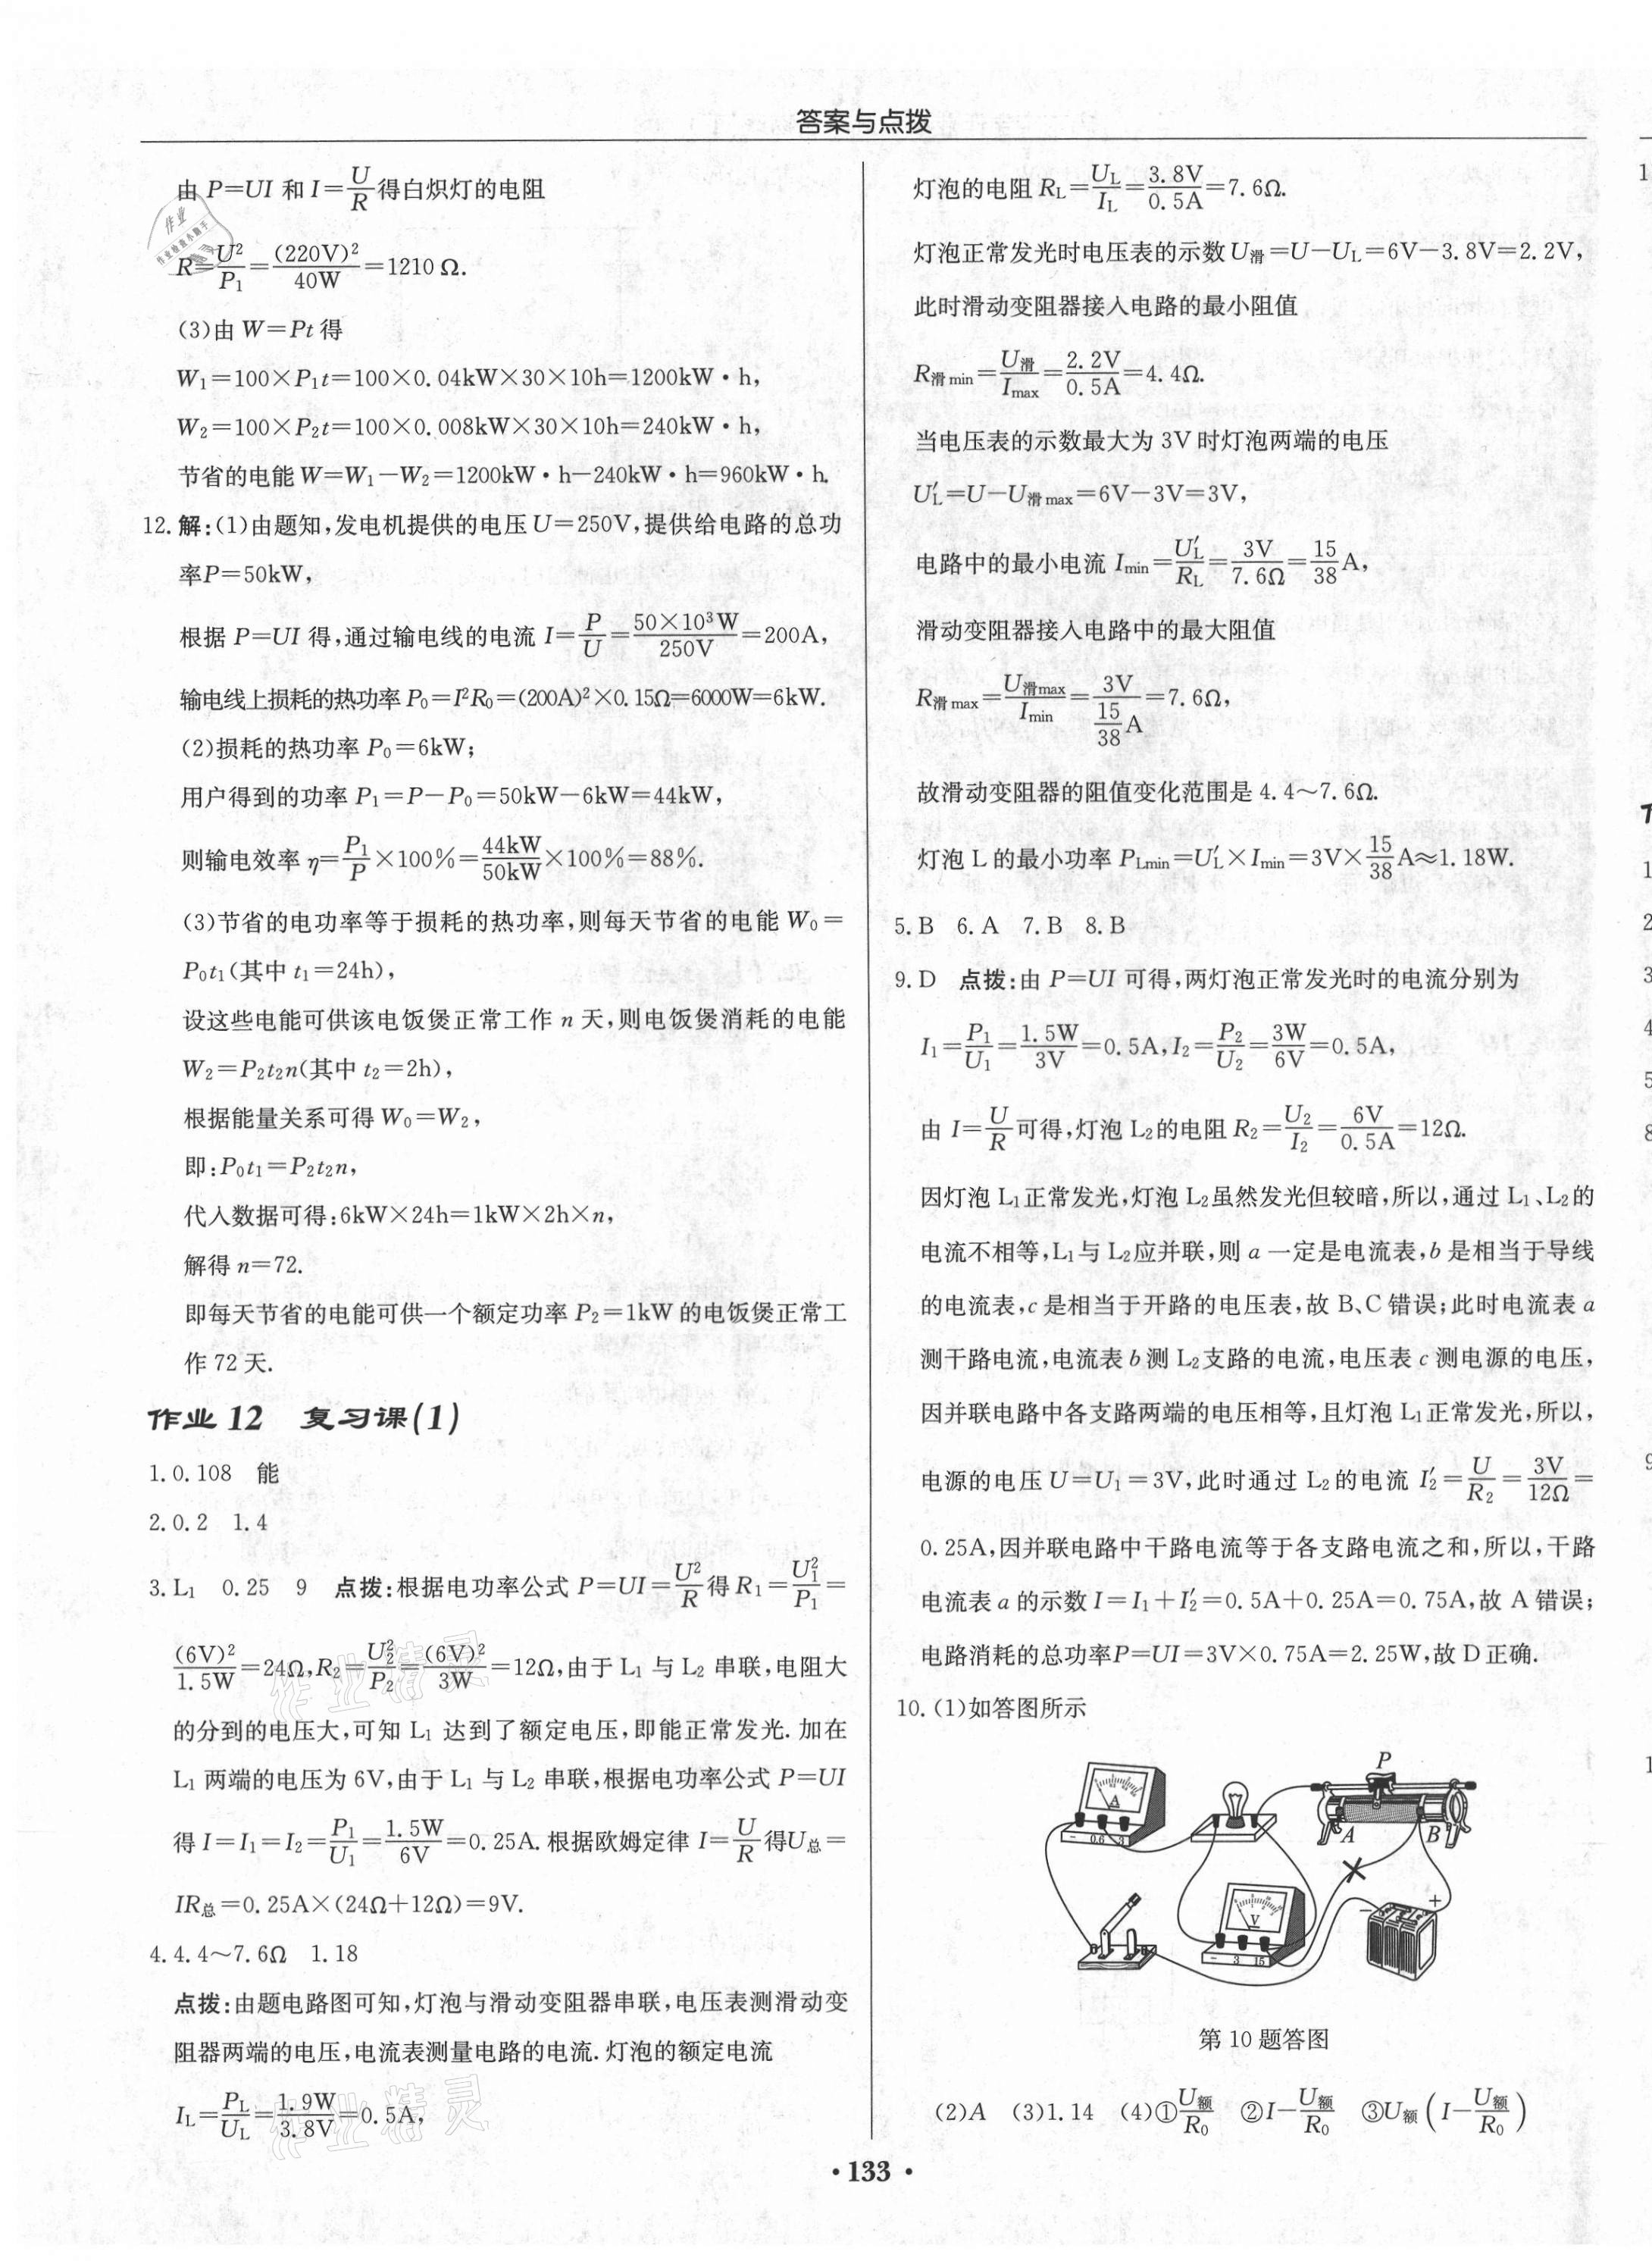 答案与点拨
由 P=UI 和 I=U/R 得白炽灯的电阻
R=U²/P₁=(220V)²/40W=1210 Ω.
(3)由 W=Pt 得
W₁=100×P₁t=100×0.04kW×30×10h=1200kW·h,
W₂=100×P₂t=100×0.008kW×30×10h=240kW·h,
节省的电能 W=W₁-W₂=1200kW·h-240kW·h=960kW·h.
12. 解:(1)由题知,发电机提供的电压 U=250V,提供给电路的总功
率P=50kW,
根据 P=UI 得,通过输电线的电流 I=P/U=50×10³W/250V=200A,
输电线上损耗的热功率 P₀=I²R₀=(200A)²×0.15Ω=6000W=6kW.
(2)损耗的热功率 P₀=6kW;
用户得到的功率 P₁=P-P₀=50kW-6kW=44kW,
则输电效率 η=P₁/P×100%=44kW/50kW×100%=88%.
(3)节省的电功率等于损耗的热功率,则每天节省的电能 W₀=
P₀t₁(其中 t₁=24h),
设这些电能可供该电饭煲正常工作 n 天,则电饭煲消耗的电能
W₂=P₂t₂n(其中 t₂=2h),
根据能量关系可得 W₀=W₂,
即:P₀t₁=P₂t₂n,
代入数据可得:6kW×24h=1kW×2h×n,
解得 n=72.
即每天节省的电能可供一个额定功率 P₂=1kW 的电饭煲正常工
作 72 天.
作业 12 复习课(1)
1. 0.108 能
2. 0.2 1.4
3. L₁ 0.25 9 点拨:根据电功率公式 P=UI=U²/R 得 R₁=U₁²/P₁=
(6V)²/1.5W=24Ω,R₂=U₂²/P₂=(6V)²/3W=12Ω,由于 L₁ 与 L₂ 串联,电阻大
的分到的电压大,可知 L₁ 达到了额定电压,即能正常发光. 加在
L₁ 两端的电压为 6V,由于 L₁ 与 L₂ 串联,根据电功率公式 P=UI
得 I=I₁=I₂=P₁/U₁=1.5W/6V=0.25A. 根据欧姆定律 I=U/R 得U总=
IR总=0.25A×(24Ω+12Ω)=9V.
4. 4.4～7.6Ω 1.18
点拨:由题电路图可知,灯泡与滑动变阻器串联,电压表测滑动变
阻器两端的电压,电流表测量电路的电流. 灯泡的额定电流
I_L=P_L/U_L=1.9W/3.8V=0.5A,
灯泡的电阻 R_L=U_L/I_L=3.8V/0.5A=7.6Ω.
灯泡正常发光时电压表的示数 U滑=U-U_L=6V-3.8V=2.2V,
此时滑动变阻器接入电路的最小阻值
R滑min=U滑/Imax=2.2V/0.5A=4.4Ω.
当电压表的示数最大为 3V 时灯泡两端的电压
U′_L=U-U滑max=6V-3V=3V,
电路中的最小电流 Imin=U′_L/R_L=3V/7.6Ω=15/38A,
滑动变阻器接入电路中的最大阻值
R滑max=U滑max/Imin=3V/(15/38A)=7.6Ω,
故滑动变阻器的阻值变化范围是 4.4～7.6Ω.
灯泡 L 的最小功率 P_Lmin=U′_L×Imin=3V×15/38A≈1.18W.
5. B 6. A 7. B 8. B
9. D 点拨:由 P=UI 可得,两灯泡正常发光时的电流分别为
I₁=P₁/U₁=1.5W/3V=0.5A,I₂=P₂/U₂=3W/6V=0.5A,
由 I=U/R可得,灯泡 L₂的电阻 R₂=U₂/I₂=6V/0.5A=12Ω.
因灯泡 L₁正常发光,灯泡 L₂虽然发光但较暗,所以,通过 L₁、L₂的
电流不相等,L₁与 L₂应并联,则 a 一定是电流表,b 是相当于导线
的电流表,c 是相当于开路的电压表,故 B、C 错误;此时电流表 a
测干路电流,电流表 b 测 L₂支路的电流,电压表 c 测电源的电压,
因并联电路中各支路两端的电压相等,且灯泡 L₁正常发光,所以,
电源的电压 U=U₁=3V,此时通过 L₂的电流 I₂′=U/R₂=3V/12Ω=
0.25A,因并联电路中干路电流等于各支路电流之和,所以,干路
电流表 a 的示数 I=I₁+I₂′=0.5A+0.25A=0.75A,故 A 错误;
电路消耗的总功率P=UI=3V×0.75A=2.25W,故 D 正确.
10. (1)如答图所示
A
- 0.6 3
P
A
B
V
- 3 15
-
+
第 10 题答图
(2)A (3)1.14 (4)①U额/R₀ ②I-U额/R₀ ③U额(I-U额/R₀)
· 133 ·
作业
作业检查小助手
作业精灵
作业精灵
1
1
2
3
4
5
8
9
1